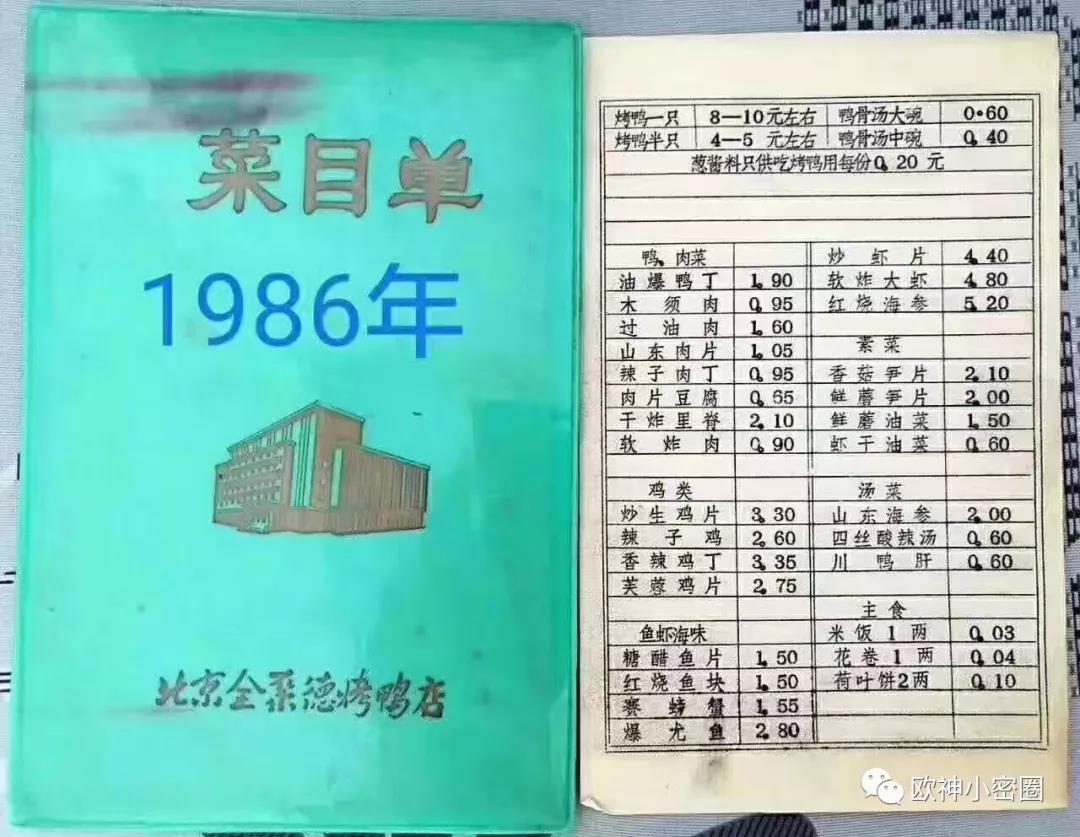 菜目单
1986年
北京全聚德烤鸭店
烤鸭一只 8—10元左右 鸭骨汤大碗 0.60
烤鸭半只 4—5 元左右 鸭骨汤中碗 0.40
葱酱料只供吃烤鸭用每份0.20 元
鸭、肉菜
油爆鸭丁 1.90
木须肉 0.95
过油肉 1.60
山东肉片 1.05
辣子肉丁 0.95
肉片豆腐 0.65
干炸里脊 2.10
软炸肉 0.90
鸡类
炒生鸡片 3.30
辣子鸡 2.60
香辣鸡丁 3.35
芙蓉鸡片 2.75
鱼虾海味
糖醋鱼片 1.50
红烧鱼块 1.50
赛螃蟹 1.55
爆尤鱼 2.80
炒虾片 4.40
软炸大虾 4.80
红烧海参 5.20
素菜
香菇笋片 2.10
鲜蘑笋片 2.00
鲜蘑油菜 1.50
虾干油菜 0.60
汤菜
山东海参 2.00
四丝酸辣汤 0.60
川鸭肝 0.60
主食
米饭1两 0.03
花卷1两 0.04
荷叶饼2两 0.10
欧神小密圈